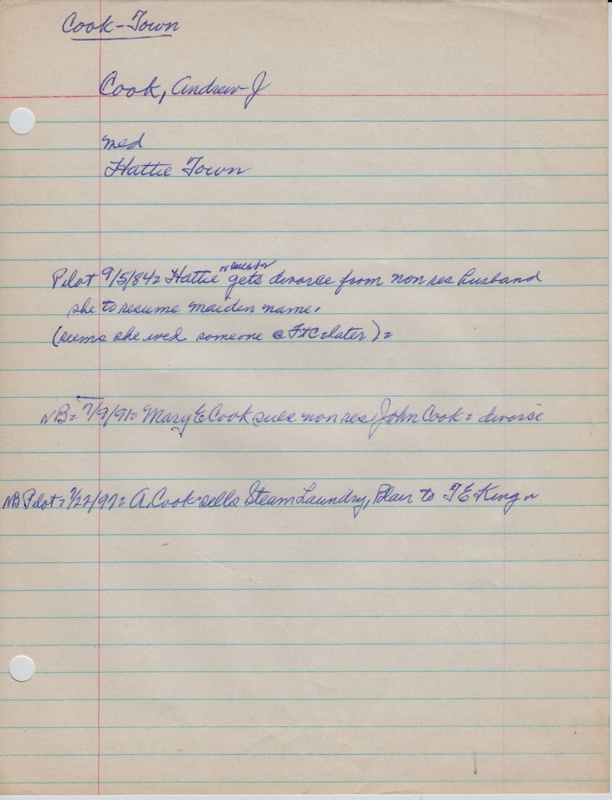 Cook-Town
Cook, Andrew J
med
Hattie Town
Pilot 9/5/84= Hattie gets divorce from non res husband
she to resume maiden name.
(seems she wed someone @ FtC later)=
NB= 7/9/91= Mary E Cook sues non res, John Cook= divorce
NB Pilot= 7/22/97= A. Cook sells Steam Laundry, Blair to F E King